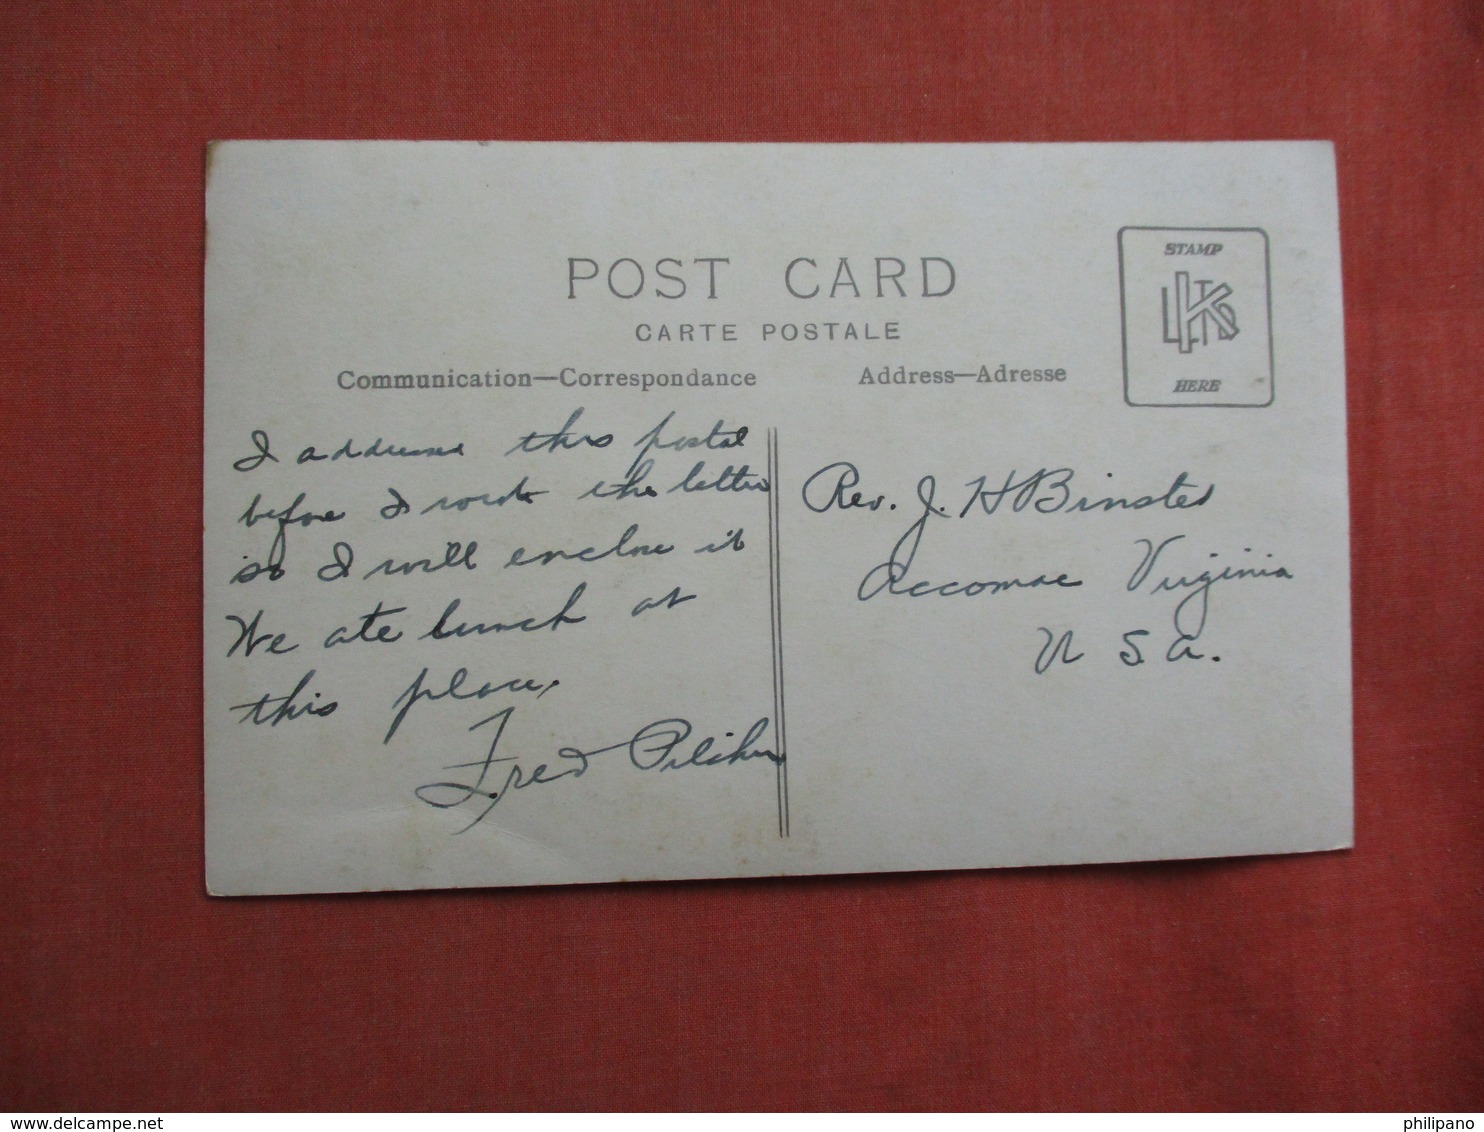 POST CARD
CARTE POSTALE
Communication—Correspondance
Address—Adresse
STAMP
LKTD
HERE
I addressed this postal
before I wrote the letter
so I will enclose it
We ate lunch at
this place.
Fred Pilcher
Rev. J. H Binsted
Accomac Virginia
U S a.
www.delcampe.net
philipano